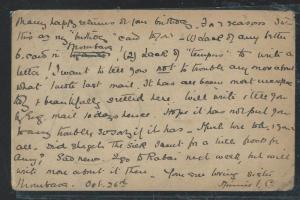 Many happy returns of your birthday. For 2 reasons I've
this as my "birthday" card to you - (1) Lack of any better
b. card in Mombasa; (2) Lack of "tempus" to write a
letter, I want to tell you not to trouble any more about
what I wrote last mail. It has all been most
& beautifully settled here will write & tell you
by Eng. mail 10 days hence. Hope it has not put you
to any trouble, so sorry if it has - Much love to
all. Did she get the silk I sent for a
Any? I go to Rabai next week, but will
write more about it then. Your ever loving sister
Mombasa. Oct. 26th